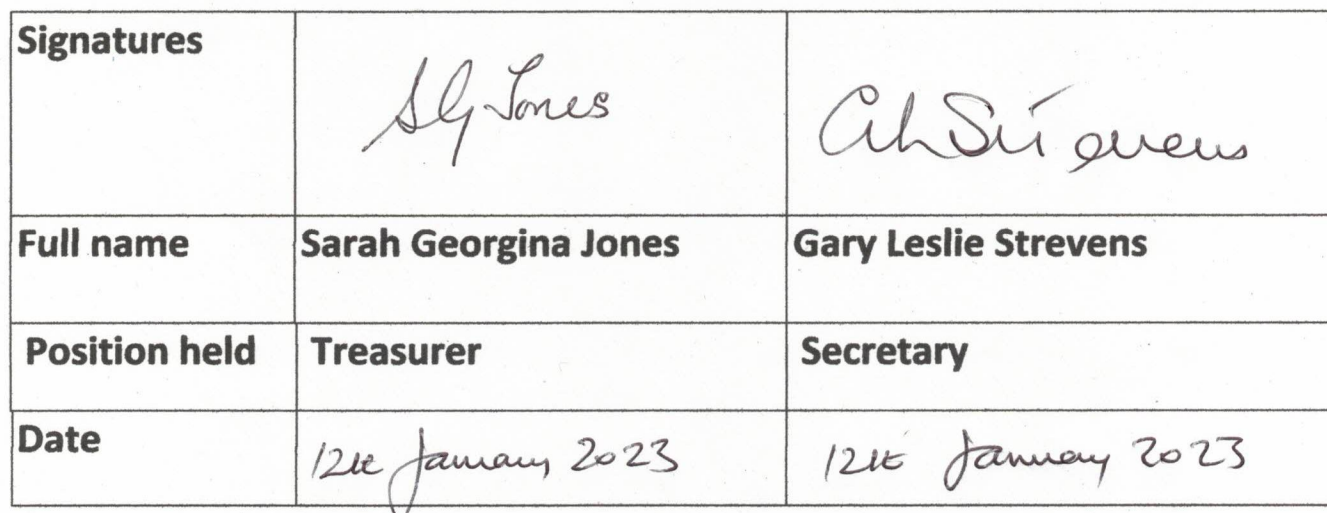 Signatures
SG Jones
GL Strevens
Full name Sarah Georgina Jones Gary Leslie Strevens
Position held Treasurer Secretary
Date 12th January 2023 12th January 2023